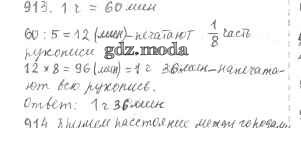 913. 1 ч = 60 мин
60 : 5 = 12 (мин) - печатают 1/8 часть
рукописи
gdz.moda
12 * 8 = 96 (мин) = 1 ч 36 мин - напечата-
ют всю рукопись.
Ответ: 1 ч 36 мин
914 Примем расстояние между городами